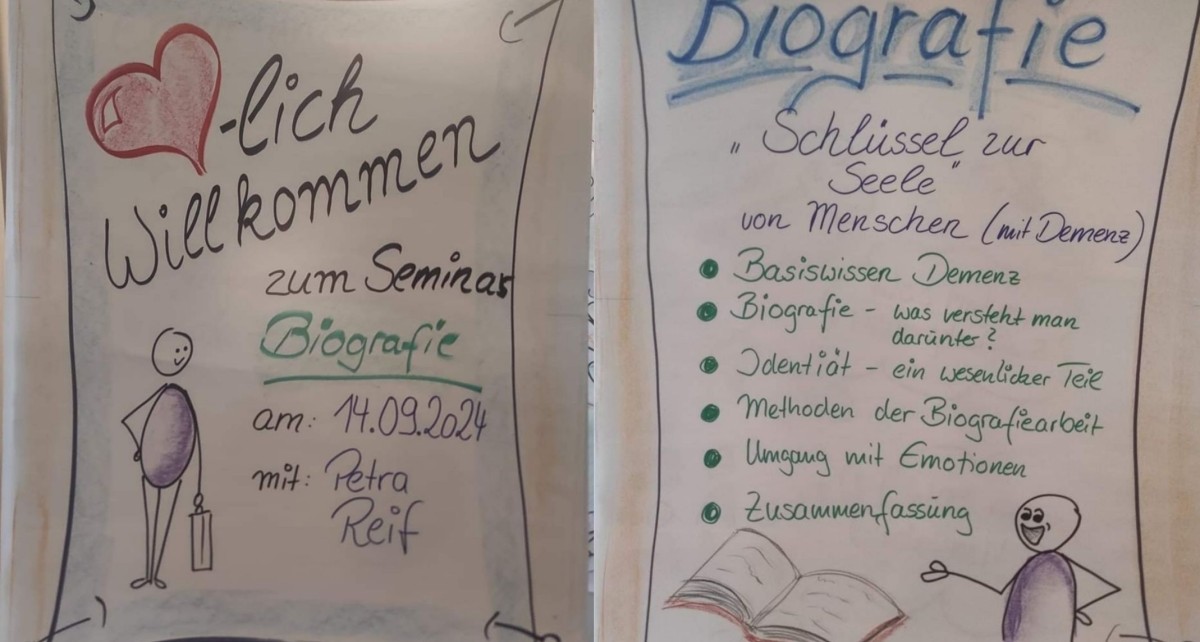 -lich
Willkommen
zum Seminar
Biografie
am: 14.09.2024
mit: Petra
Reif
Biografie
„Schlüssel zur
Seele"
von Menschen (mit Demenz)
Basiswissen Demenz
Biografie - was versteht man
darünter?
Identiät - ein wesenlicher Teil
Methoden der Biografiearbeit
Umgang mit Emotionen
Zusammenfassüng